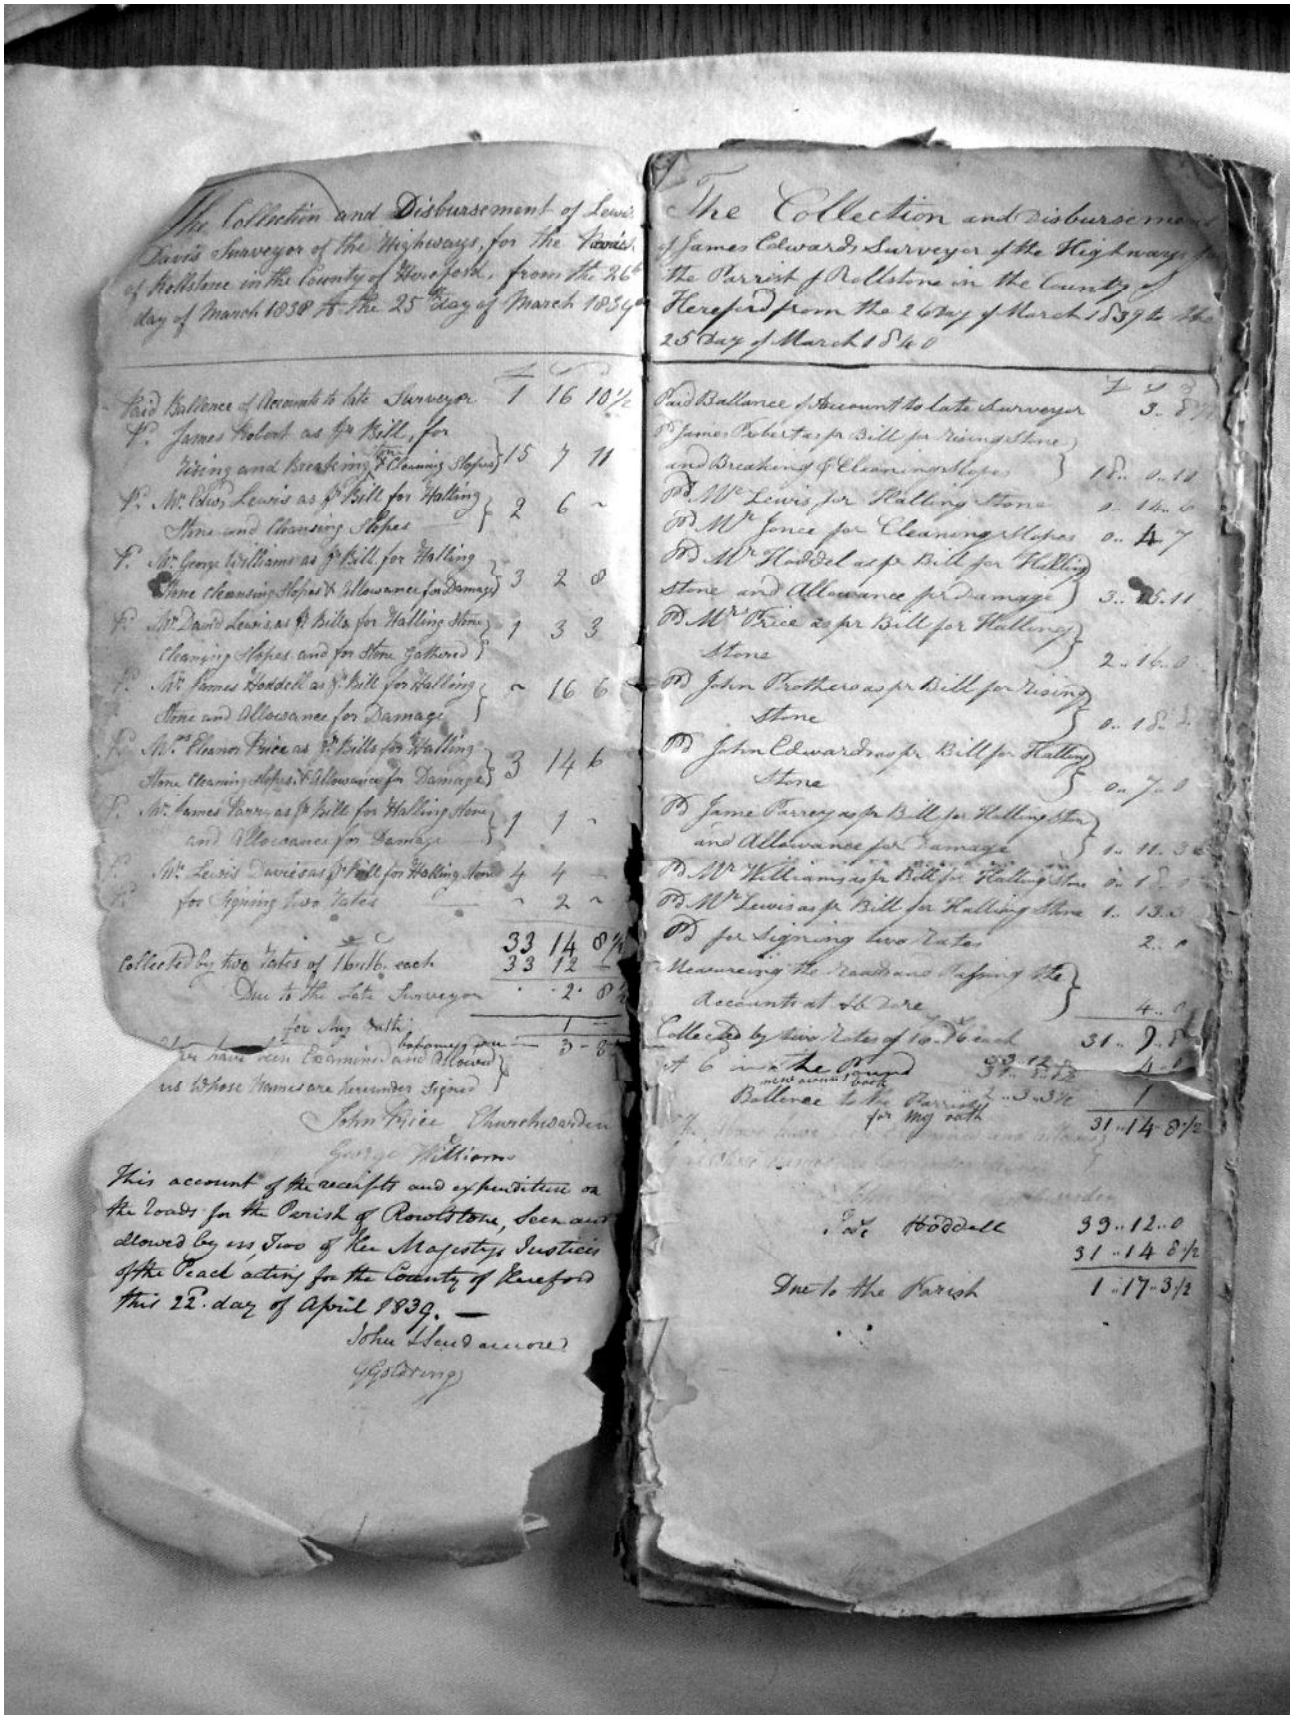 The Collection and Disbursement of Lewis
Davis Surveyor of the Highways, for the Parish
of Rollstone in the County of Hereford, from the 26th
day of March 1838 to the 25th day of March 1839
Paid Ballence of Accounts to late Surveyor 1 16 10 1/2
Pd. James Probert as pr Bill, for
rising and Breaking Stone & Cleaning Slopes 15 7 11
Pd. Mr. Edwd. Lewis as pr Bill for Halling
Stone and Cleansing Slopes 2 6 ~
Pd. Mr. George Williams as pr Bill for Halling
Stone cleansing Slopes & Allowance for Damage 3 2 8
Pd. Mr. David Lewis as pr Bills for Halling Stone
Cleaning Slopes and for Stone Gathered 1 3 3
Pd. Mr. James Hoddell as pr Bill for Halling
Stone and Allowance for Damage ~ 16 6
Pd. Mrs. Eleanor Price as pr Bills for Halling
Stone Cleaning Slopes & Allowance for Damage 3 14 6
Pd. Mr. James Parry as pr Bill for Halling Stone
and Allowance for Damage 1 1 ~
Pd. Mr. Lewis Davies as pr Bill for Halling Stone 4 4 ~
Pd. for Signing two Rates ~ 2 ~
33 14 8 1/2
Collected by two Rates of 16 16 each 33 12 ~
Due to the Late Surveyor 2 8 1/2
for My oath 1 ~
3 - 8 1/2
have been Examined and Allowed
us Whose Names are hereunder Signed
John Price Churchwarden
George Williams
This account of the receipts and expenditure on
the roads for the Parish of Rowlstone, Seen and
allowed by us, Two of Her Majestys Justices
of the Peace acting for the County of Hereford
this 22d. day of April 1839. —
John Scudamore
The Collection and Disbursement
of James Edwards Surveyor of the Highways for
the Parrish of Rollstone in the County of
Hereford from the 26 Day of March 1839 to the
25 Day of March 1840
£ s d
Paid Ballance of Account to late Surveyor 3.. 8 1/2
Pd James Probert as pr Bill for rising Stone
and Breaking & Cleaning Slopes 18.. 0.. 10
Pd Mr Lewis for Halling Stone 0.. 14.. 6
Pd Mr Jones for Cleanong Slopes 0.. 4 7
Pd Mr Hoddel as pr Bill for Halling
Stone and Allowance for Damage 3.. 15.. 11
Pd Mrs Price as pr Bill for Halling
Stone 2.. 16.. 0
Pd John Prothero as pr Bill for rising
Stone 0.. 18..
Pd John Edwards as pr Bill for Halling
Stone 0.. 7.. 0
Pd Jame Parrey as pr Bill for Halling Ston
and Allowance for Damage 1.. 11.. 3
Pd Mr Williams as pr Bill for Halling Stone 0.. 18..
Pd Mr Lewis as pr Bill for Halling Stone 1.. 13..
Pd for Signing two Rates 2.. 0
Meaureing the roads and Passing the
Accounts at Ab Dore 4.. 0
Collected by two Rates of 16.. 16 each 31.. 9.. 8 1/2
At 6 in the Pound 33..12.. 4..
new book
Ballence to the Parrish 1
for my oath 31..14 8 1/2
Hoddell 33..12..0
31..14 8 1/2
Due to the Parish 1..17..3 1/2